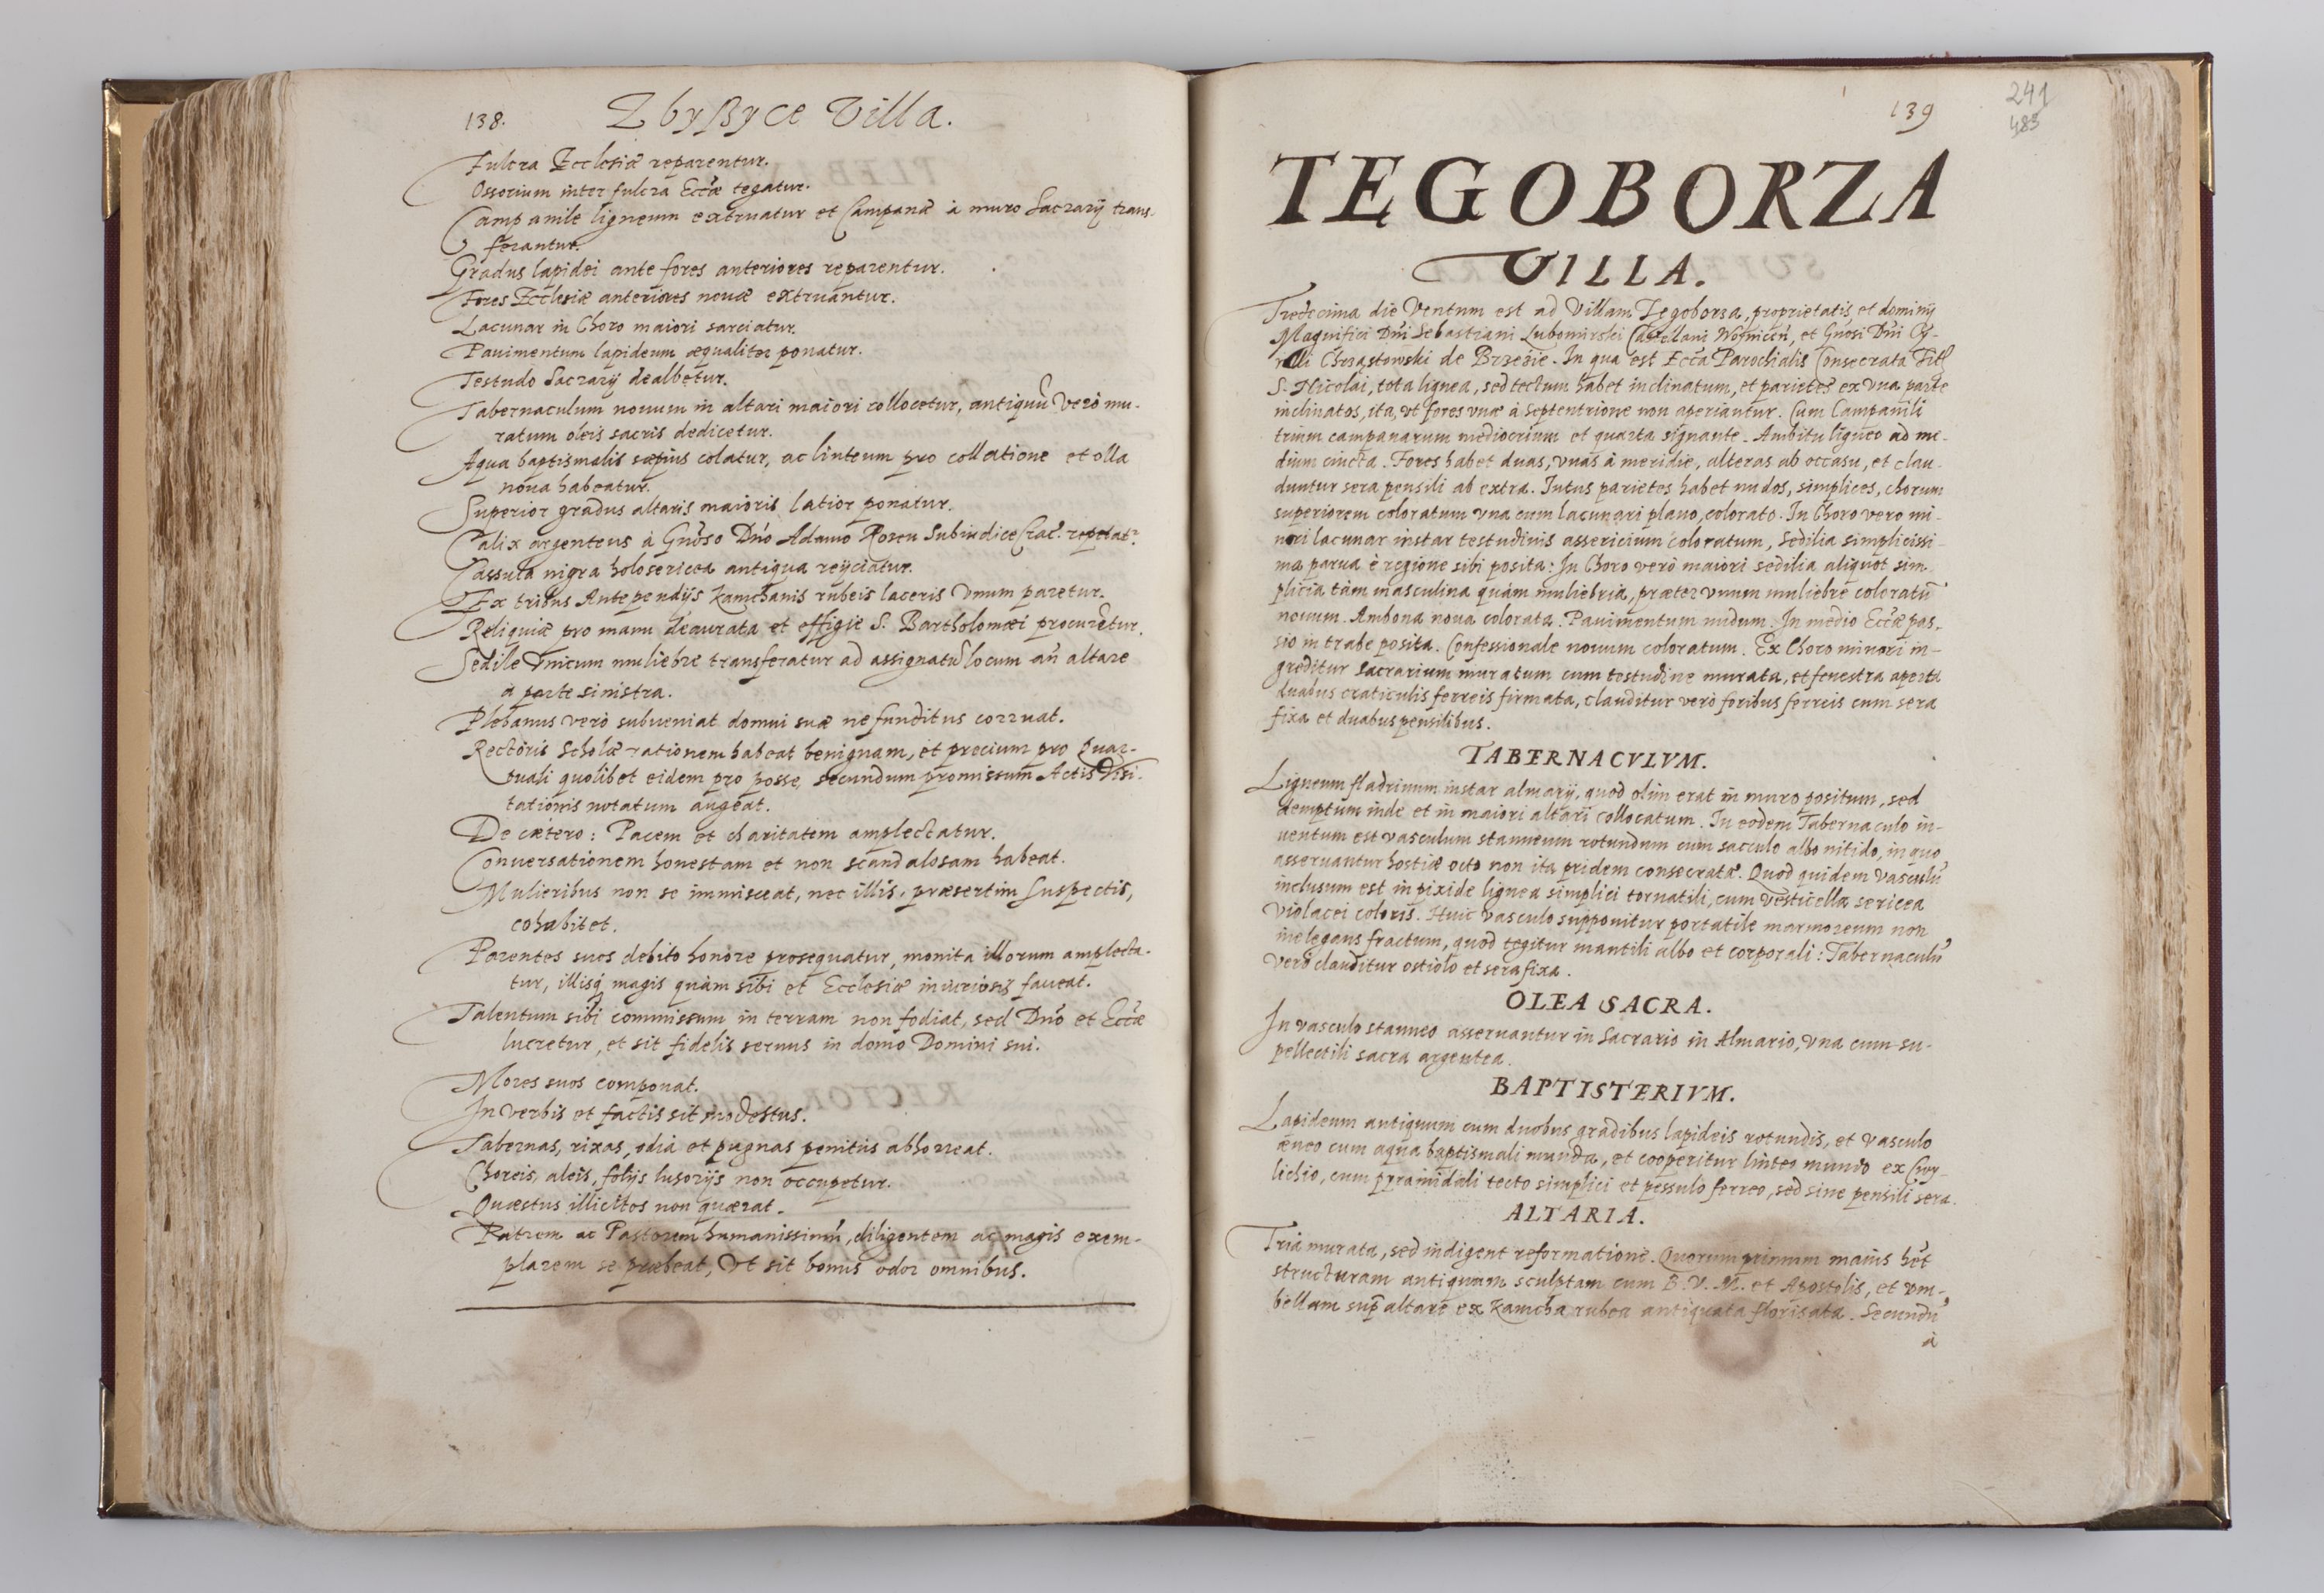 138. Zbyßyce Villa.
Fulcra Ecclesiæ reparentur.
Ossorium inter fulcra Eccæ tegatur.
Campanile ligneum extruatur et Campanæ à muro Sacrarij trans-
ferantur.
Gradus lapidei ante fores anteriores reparentur.
Fores Ecclesiæ anteriores nouæ extruantur.
Lacunar in Choro maiori sarciatur.
Pauimentum lapideum æqualiter ponatur.
Testudo Sacrarij dealbetur.
Tabernaculum nouum in altari maiori collocetur, antiquũ verò mu-
ratum oleis sacris dedicetur.
Aqua baptismalis sæpius colatur, ac linteum pro collatione et olla
noua habeatur.
Superior gradus altaris maioris latior ponatur.
Calix argenteus à Gnõso Dnõ Adamo Rosen Subiudice Crac. repetatr.
Cassula nigra holosericea antiqua reijciatur.
Ex tribus Antependijs Kamchanis rubeis laceris vnum paretur.
Reliquiæ pro manu deaurata et effigie S. Bartholomæi procuretur.
Sedile vnicum muliebre transferatur ad assignatũ locum añ altare
à parte sinistra.
Plebanus verò subueniat domui suæ ne funditus corruat.
Rectoris Scholæ rationem habeat benignam, et precium pro Quar-
tuali quolibet eidem pro posse, secundum promissum Actis Visi-
tationis notatum augeat.
De cætero: Pacem et charitatem amplectatur.
Conuersationem honestam et non scandalosam habeat.
Mulieribus non se immisceat, nec illis, præsertim suspectis,
cohabitet.
Parentes suos debito honore prosequatur, monita illorum amplecta-
tur, illisq magis quàm sibi et Ecclesiæ iniuriosis faueat.
Talentum sibi commissum in terram non fodiat, sed Dnõ et Eccæ
lucretur, et sit fidelis seruus in domo Domini sui.
Mores suos componat.
In verbis et factis sit modestus.
Tabernas, rixas, odia et pugnas penitus abhorreat.
Choreis, aleis, folijs lusorijs non occupetur.
Quæstus illicitos non quærat.
Patrem ac Pastorem humanissimũ, diligentem ac magis exem-
plarem se præbeat, vt sit bonus odor omnibus.
139
241
483
TEGOBORZA
VILLA.
Tredecima die Ventum est ad Villam Tegoborza, proprietatis et dominij
Magnifici Dñi Sebastiani Lubomirski Castellani Woynicẽn, et Gnõsi Dñi Cy-
rilli Chrząstowski de Brzezie. In qua est Ecca Parochialis Consecrata Titl
S. Nicolai, tota lignea, sed tectum habet inclinatum, et parietes ex vna parte
inclinatos, ita, vt fores vnæ à Septentrione non aperiantur. Cum Campanili
trium campanarum mediocrium et quarta signante. Ambitu ligneo ad me-
dium cincta. Fores habet duas, vnas à meridie, alteras ab occasu, et clau-
duntur sera pensili ab extra. Intus parietes habet nudos, simplices, chorum
superiorem coloratum vna cum lacunari plano, colorato. In Choro vero mi-
nori lacunar instar testudinis assericium coloratum, Sedilia simplicissi-
ma parua è regione sibi posita: In Choro verò maiori sedilia aliquot sim-
plicia tàm masculina quàm muliebria, præter vnum muliebre coloratũ
nouum. Ambona noua colorata. Pauimentum nudum. In medio Eccæ pas-
sio in trabe posita. Confessionale nouum coloratum. Ex Choro minori in-
greditur Sacrarium muratum cum testudine murata, et fenestra aperta
duabus craticulis ferreis firmata, clauditur verò foribus ferreis cum sera
fixa et duabus pensilibus.
TABERNACVLVM.
Ligneum fladrinum instar almarij, quod olim erat in muro positum, sed
demptum inde et in maiori altari collocatum. In eodem Tabernaculo in-
uentum est vasculum stanneum rotundum cum sacculo albo nitido, in quo
asseruantur hostiæ octo non ita pridem consecratæ. Quod quidem vasculũ
inclusum est in pixide lignea simplici tornatili, cum vesticella sericea
violacei coloris. Huic vasculo supponitur portatile marmoreum non
inelegans fractum, quod tegitur mantili albo et corporali: Tabernaculũ
verò clauditur ostiolo et sera fixa.
OLEA SACRA.
In vasculo stanneo asseruantur in Sacrario in Almario, vna cum su-
pellectili sacra argentea.
BAPTISTERIVM.
Lapideum antiquum cum duobus gradibus lapideis rotundis, et vasculo
æneo cum aqua baptismali munda, et cooperitur linteo mundo ex Cwy-
lichio, cum piramidali tecto simplici et pessulo ferreo, sed sine pensili sera.
ALTARIA.
Tria murata, sed indigent reformatione. Quorum primum maius hẽt
structuram antiquam sculptam cum B. V. M. et Apostolis, et vm-
bellam sup altare ex Kamcha rubea antiquata florisata. Secundũ
à